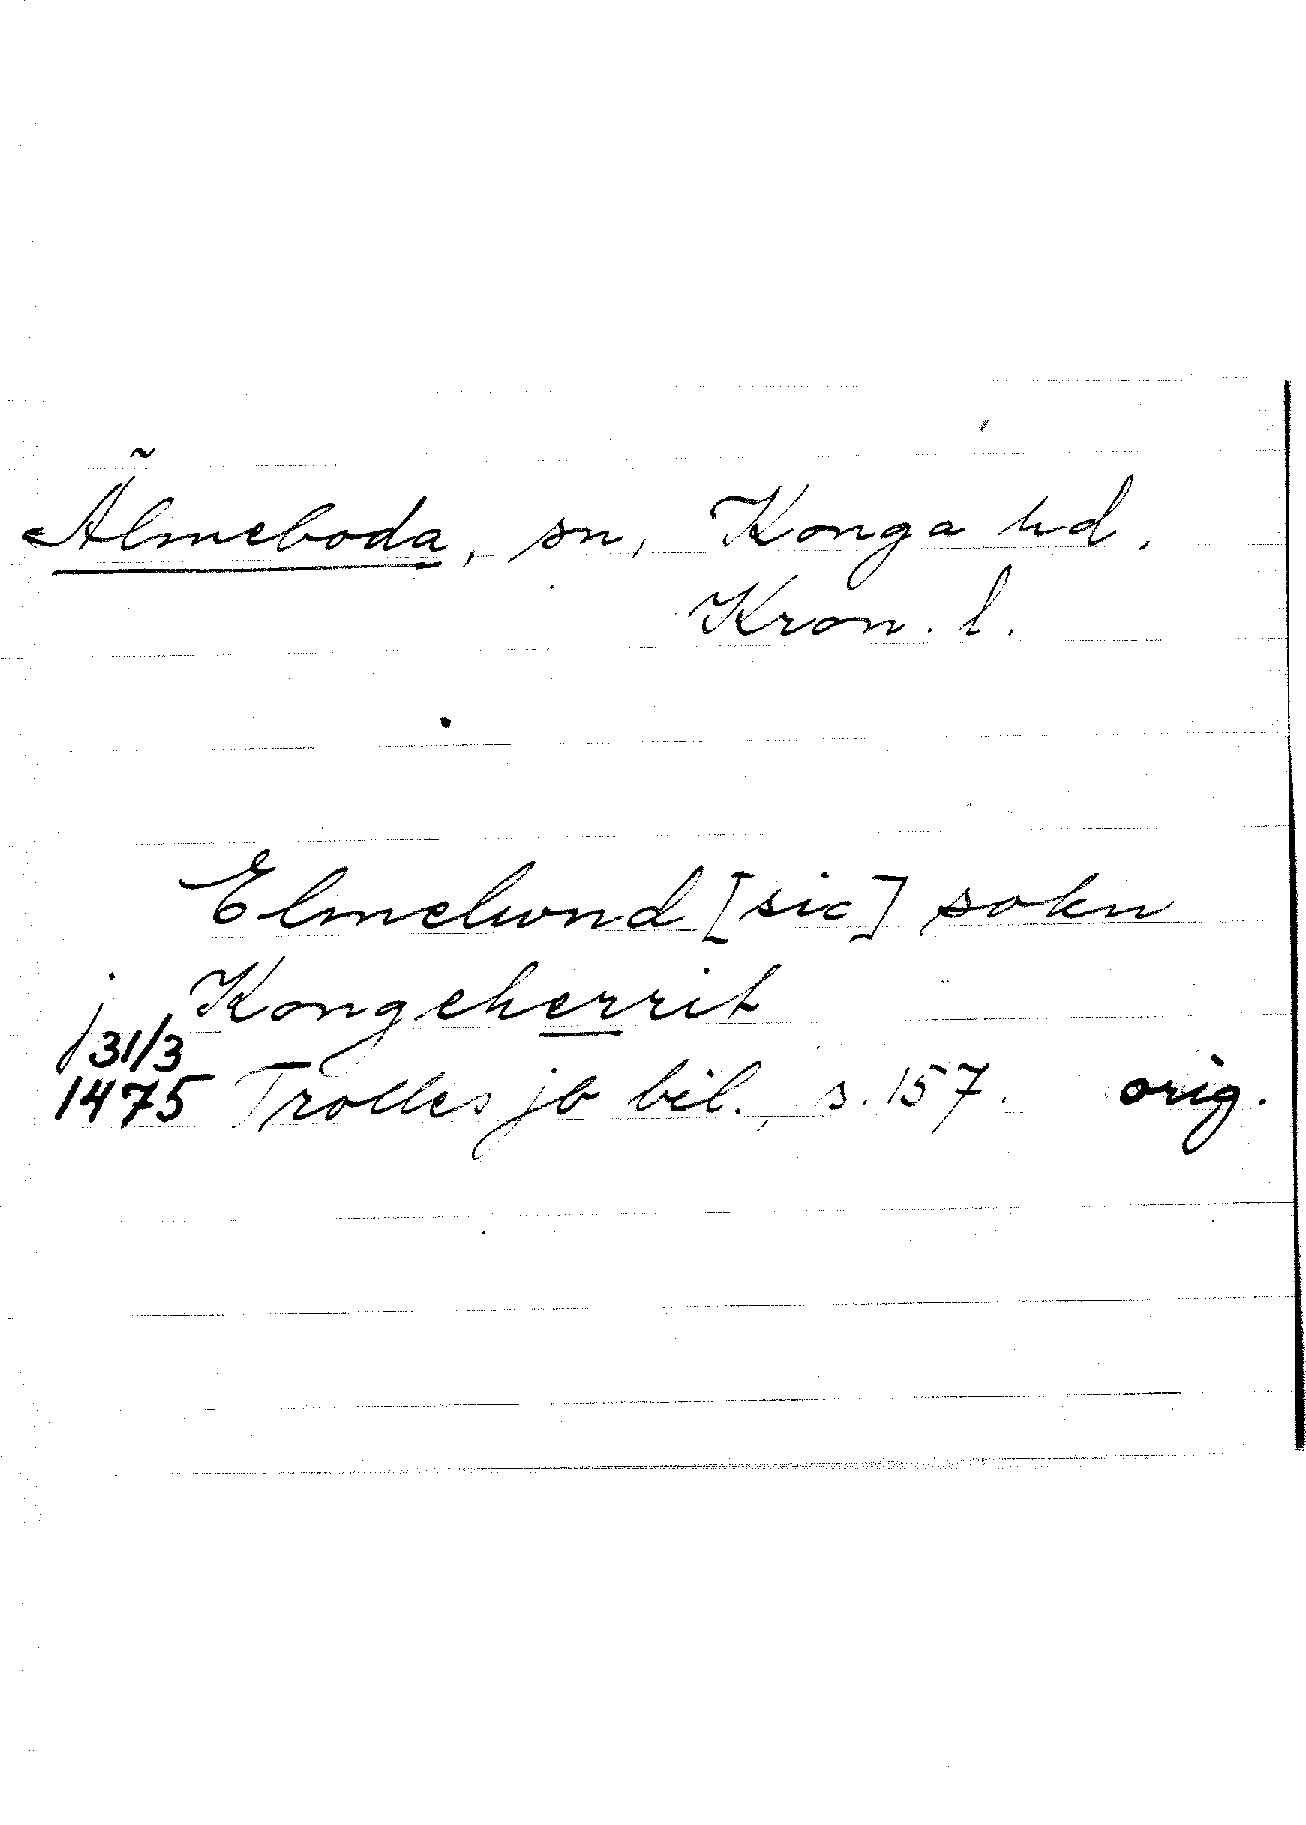 Älmeboda, sn, Konga hd,
Kron. l.
Elmelwnd [sic] sokn
j Kongeherrit
31/3
1475 Trolles jb bil., s. 157. orig.